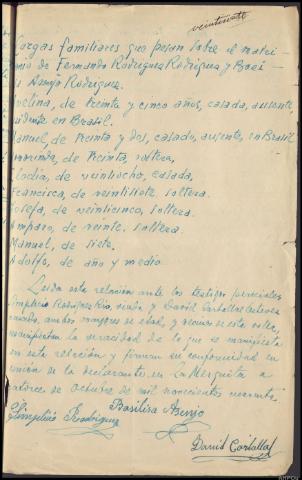 veintisiete
Cargas familiares que pesan sobre el matri-
monio de Fernando Rodriguez Rodriguez y Basi-
lisa Asenjo Rodriguez.
Avelina, de treinta y cinco años, casada, ausente,
residente en Brasil.
Manuel, de treinta y dos, casado, ausente, en Brasil
de treinta, soltera,
Elodia, de veintiocho, casada,
Francisca, de veintisiete, soltera.
Josefa, de veinticinco, soltera.
Amparo, de veinte, soltera.
Manuel, de siete.
Adolfo, de año y medio
Leida esta relación ante los testigos
Rodriguez Rio, viudo y David Carballal
casado, ambos mayores de edad, y vecinos de esta
manifiestan la veracidad de lo que se manifiesta
en esta relación y firman su conformidad en
unión de la declarante en La Mezquita a
catorce de Octubre de mil novecientos cuarenta.
Simplicio Rodriguez
Basilisa Asenjo
David Carballal